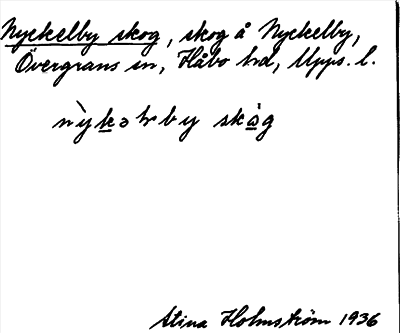 Nyckelby skog, skog å Nyckelby,
Övergrans sn, Håbo hd, Upps. l.
by skòg
Stina Holmström 1936